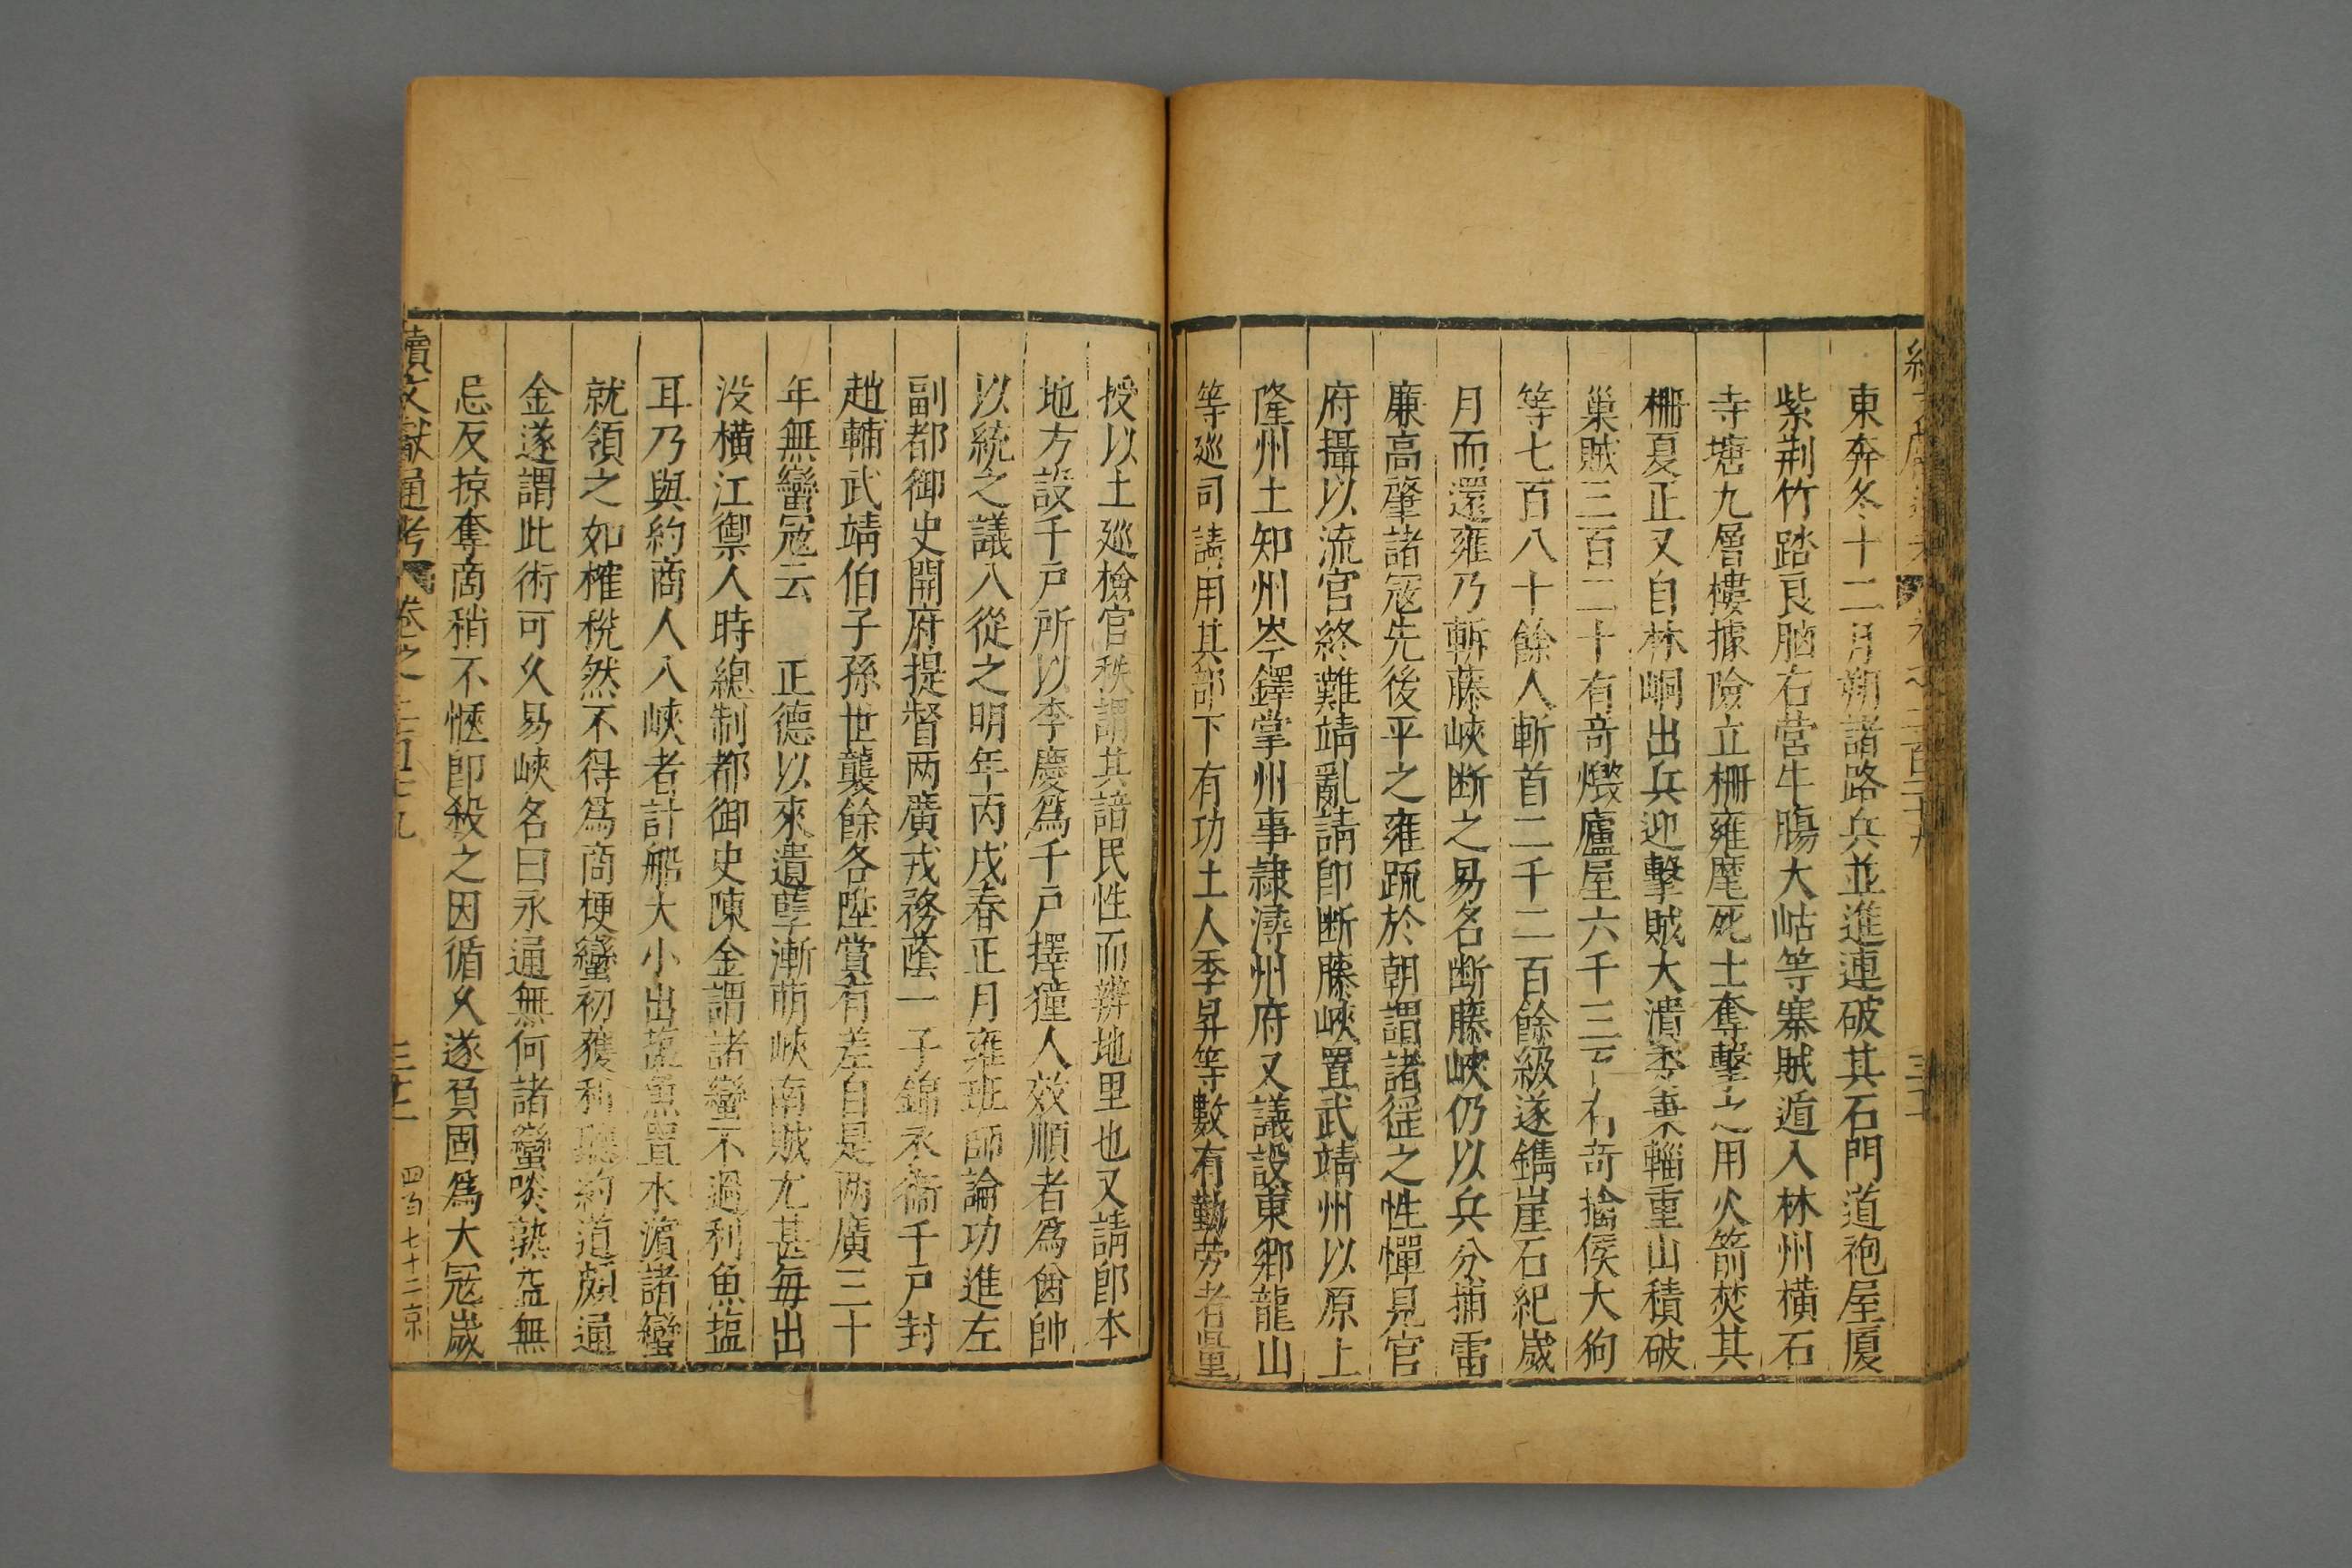 東奔冬十二月朔諸路兵並進連破其石門道袍屋厦
紫荆竹踏良腦右營牛膓大岵等寨賊遁入林州橫石
寺塘九層樓據險立柵雍麾死士奪擊之用火箭焚其
柵夏正又自林峒出兵迎擊賊大潰委棄輜重山積破
巢賊三百二十有奇燬廬屋六千三百有奇擒侯大狗
等七百八十餘人斬首二千二百餘級遂鐫崖石紀歲
月而還雍乃斬藤峽断之易名断藤峽仍以兵分捕雷
廉高肇諸冦先後平之雍䟽於朝謂諸猺之性憚見官
府攝以流官終難靖亂請卽断藤峽置武靖州以原上
隆州土知州岑鐸掌州事隷潯州府又議設東鄉龍山
等巡司請用其部下有功土人李昇等數有勤劳者量
授以土巡檢官秩謂其諳民性而辨地里也又請卽本
地方設千戸所以李慶爲千戸擇獞人效順者爲酋帥
以統之議入從之明年丙戌春正月雍班師論功進左
副都御史開府提督两廣戎務蔭一子錦衣衞千戸封
趙輔武靖伯子孫世襲餘各陞賞有差自是两廣三十
年無蠻冦云　正德以來遺孽漸萌峽南賊尤甚每出
没橫江禦人時總制都御史陳金謂諸蠻不過利魚塩
耳乃與約商人入峽者計船大小出塩魚置水濵諸蠻
就領之如榷稅然不得爲商梗蠻初獲利聽約道頗通
金遂謂此術可久易峽名曰永通無何諸蠻啖熟益無
忌反掠奪商稍不愜卽殺之因循久遂負固爲大冦歲
續文獻通考　卷之二百三十九　三十二　四百七十二京